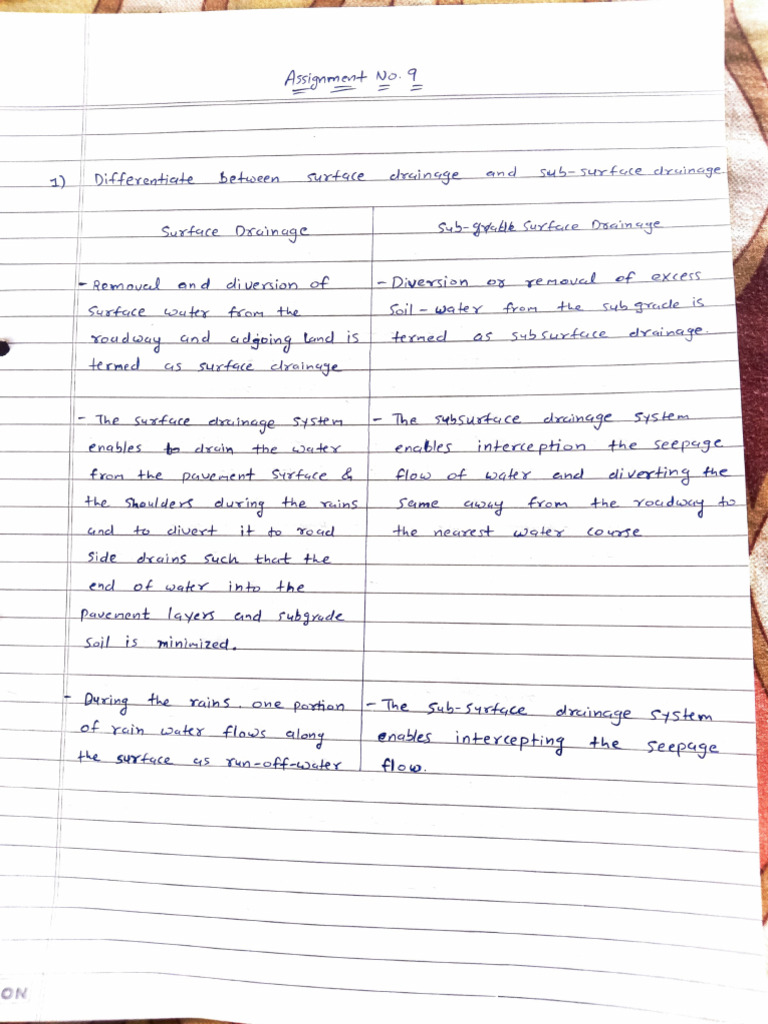 Assignment No. 9
1) Differentiate between surface drainage and sub-surface drainage
Surface Drainage
- Removal and diversion of
surface water from the
roadway and adgoing land is
termed as surface drainage
- The surface drainage system
enables to drain the water
from the pavement surface &
the shoulders during the rains
and to divert it to road
side drains such that the
end of water into the
pavement layers and subgrade
soil is minimized.
- During the rains. one portion
of rain water flows along
the surface as run-off-water
Sub- Surface Drainage
- Diversion or removal of excess
soil-water from the subgrade is
termed as subsurface drainage.
- The subsurface drainage system
enables interception the seepage
flow of water and diverting the
same away from the roadway to
the nearest water course
- The sub-surface drainage system
enables intercepting the seepage
flow.
ON